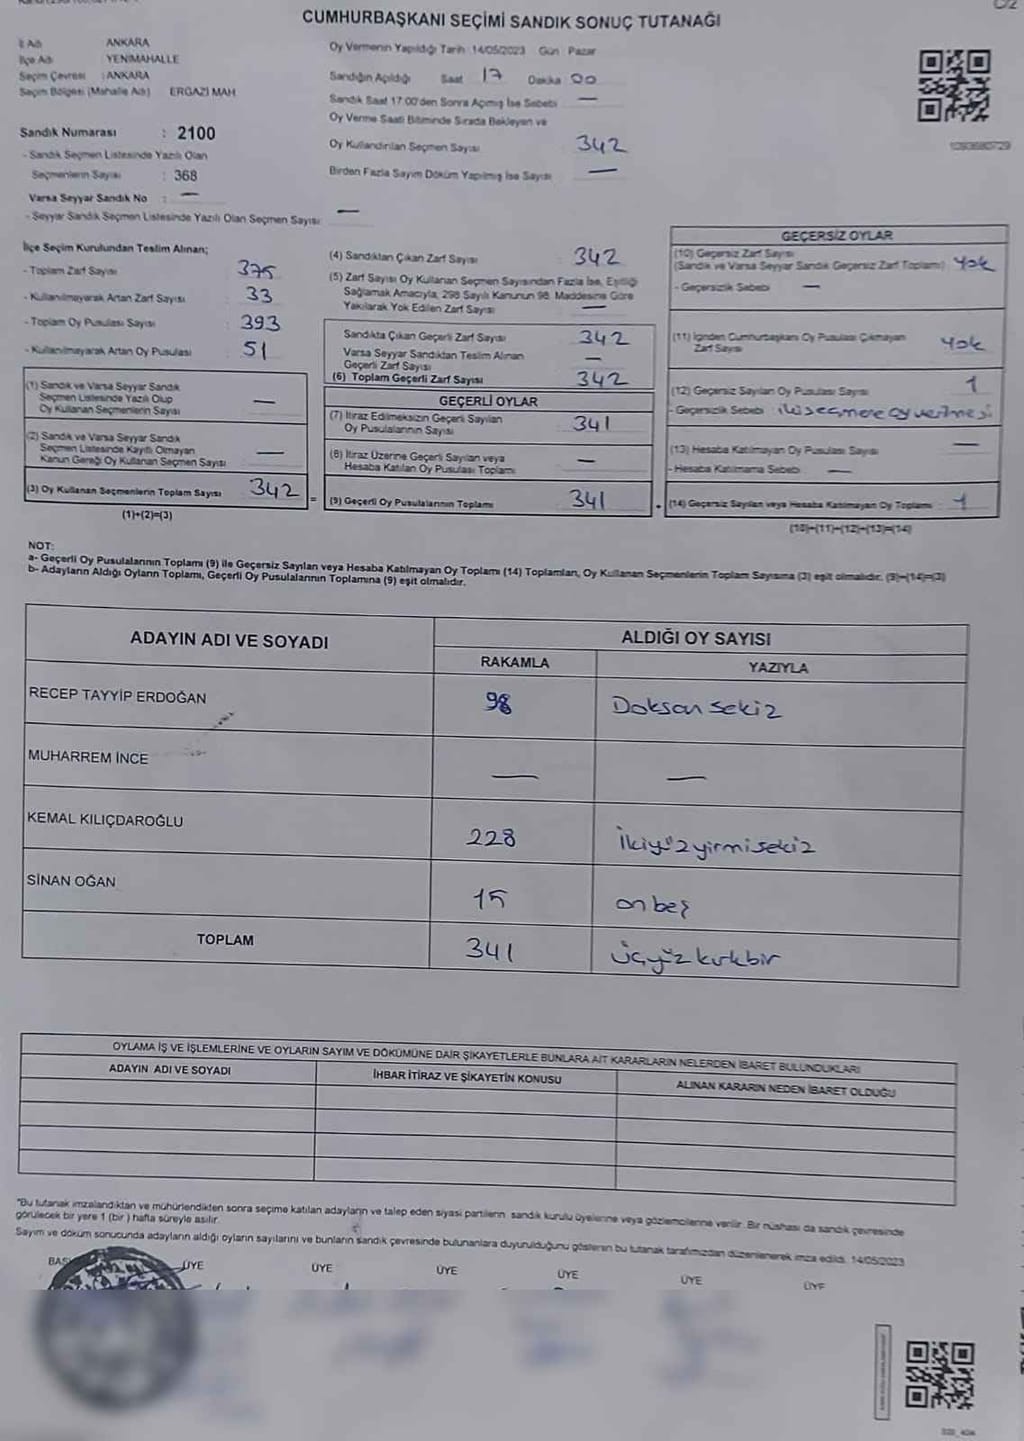 CUMHURBAŞKANI SEÇİMİ SANDIK SONUÇ TUTANAĞI
C/2
İl Adı ANKARA
İlçe Adı YENİMAHALLE
Seçim Çevresi : ANKARA
Seçim Bölgesi (Mahalle Adı) ERGAZİ MAH
Sandık Numarası : 2100
- Sandık Seçmen Listesinde Yazılı Olan
Seçmenlerin Sayısı : 368
Varsa Seyyar Sandık No : —
- Seyyar Sandık Seçmen Listesinde Yazılı Olan Seçmen Sayısı: —
Oy Vermenin Yapıldığı Tarih 14/05/2023 Gün Pazar
Sandığın Açıldığı Saat 17 Dakika 00
Sandık Saat 17:00'den Sonra Açımış İse Sebebi —
Oy Verme Saati Bitiminde Sırada Bekleyen ve
Oy Kullandırılan Seçmen Sayısı 342
Birden Fazla Sayım Döküm Yapılmış İse Sayısı —
İlçe Seçim Kurulundan Teslim Alınan;
- Toplam Zarf Sayısı : 375
- Kullanılmayarak Artan Zarf Sayısı : 33
- Toplam Oy Pusulası Sayısı : 393
- Kullanılmayarak Artan Oy Pusulası : 51
(1) Sandık ve Varsa Seyyar Sandık
Seçmen Listesinde Yazılı Olup
Oy Kullanan Seçmenlerin Sayısı —
(2) Sandık ve Varsa Seyyar Sandık
Seçmen Listesinde Kayıtlı Olmayan
Kanun Gereği Oy Kullanan Seçmen Sayısı —
(3) Oy Kullanan Seçmenlerin Toplam Sayısı 342
(1)+(2)=(3)
(4) Sandıktan Çıkan Zarf Sayısı : 342
(5) Zarf Sayısı Oy Kullanan Seçmen Sayısından Fazla İse, Eşitliği
Sağlamak Amacıyla, 298 Sayılı Kanunun 98. Maddesine Göre
Yakılarak Yok Edilen Zarf Sayısı —
Sandıkta Çıkan Geçerli Zarf Sayısı 342
Varsa Seyyar Sandıktan Teslim Alınan
Geçerli Zarf Sayısı —
(6) Toplam Geçerli Zarf Sayısı 342
GEÇERLİ OYLAR
(7) İtiraz Edilmeksizin Geçerli Sayılan
Oy Pusulalarının Sayısı 341
(8) İtiraz Üzerine Geçerli Sayılan veya
Hesaba Katılan Oy Pusulası Toplamı —
(9) Geçerli Oy Pusulalarının Toplamı 341
GEÇERSİZ OYLAR
(10) Geçersiz Zarf Sayısı
(Sandık ve Varsa Seyyar Sandık Geçersiz Zarf Toplamı) Yok
- Geçersizlik Sebebi : —
(11) İçinden Cumhurbaşkanı Oy Pusulası Çıkmayan
Zarf Sayısı Yok
(12) Geçersiz Sayılan Oy Pusulası Sayısı 1
- Geçersizlik Sebebi : iki seçmene oy verilmesi
(13) Hesaba Katılmayan Oy Pusulası Sayısı —
- Hesaba Katılmama Sebebi : —
(14) Geçersiz Sayılan veya Hesaba Katılmayan Oy Toplamı 1
(10)+(11)+(12)+(13)=(14)
NOT:
a- Geçerli Oy Pusulalarının Toplamı (9) ile Geçersiz Sayılan veya Hesaba Katılmayan Oy Toplamı (14) Toplamları, Oy Kullanan Seçmenlerin Toplam Sayısına (3) eşit olmalıdır. (9)+(14)=(3)
b- Adayların Aldığı Oyların Toplamı, Geçerli Oy Pusulalarının Toplamına (9) eşit olmalıdır.
ADAYIN ADI VE SOYADI
ALDIĞI OY SAYISI
RAKAMLA YAZIYLA
RECEP TAYYİP ERDOĞAN 98 Doksan sekiz
MUHARREM İNCE — —
KEMAL KILIÇDAROĞLU 228 İkiyüzyirmisekiz
SİNAN OĞAN 15 onbeş
TOPLAM 341 üçyüzkırkbir
OYLAMA İŞ VE İŞLEMLERİNE VE OYLARIN SAYIM VE DÖKÜMÜNE DAİR ŞİKAYETLERLE BUNLARA AİT KARARLARIN NELERDEN İBARET BULUNDUKLARI
ADAYIN ADI VE SOYADI İHBAR İTİRAZ VE ŞİKAYETİN KONUSU ALINAN KARARIN NEDEN İBARET OLDUĞU
*Bu tutanak imzalandıktan ve mühürlendikten sonra seçime katılan adayların ve talep eden siyasi partilerin sandık kurulu üyelerine veya gözlemcilerine verilir. Bir nüshası da sandık çevresinde
görülecek bir yere 1 (bir ) hafta süreyle asılır.
Sayım ve döküm sonucunda adayların aldığı oyların sayılarını ve bunların sandık çevresinde bulunanlara duyurulduğunu gösteren bu tutanak tarafımızdan düzenlenerek imza edildi. 14/05/2023
ÜYE ÜYE ÜYE ÜYE ÜYE ÜYE